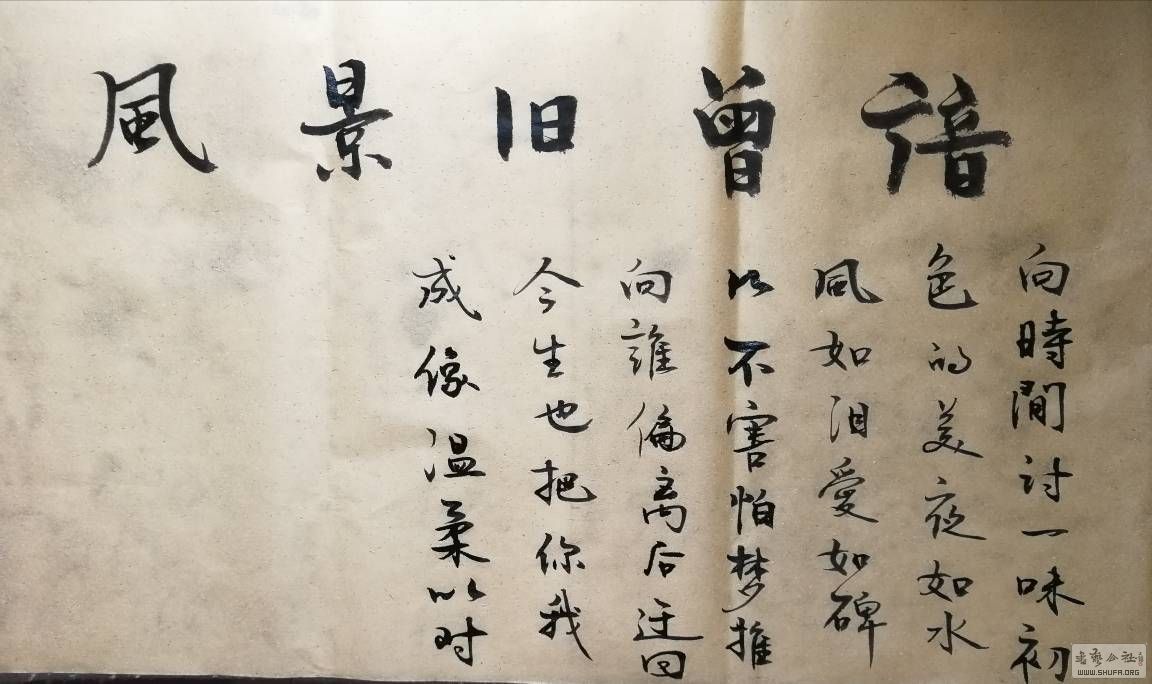 風景旧曾諳
向時間討一味初
色的美夜如水
風如泪愛如碑
以不害怕梦推
向誰偏离后迂回
今生也把你我
成像温柔以时
書藝公社
WWW.SHUFA.ORG